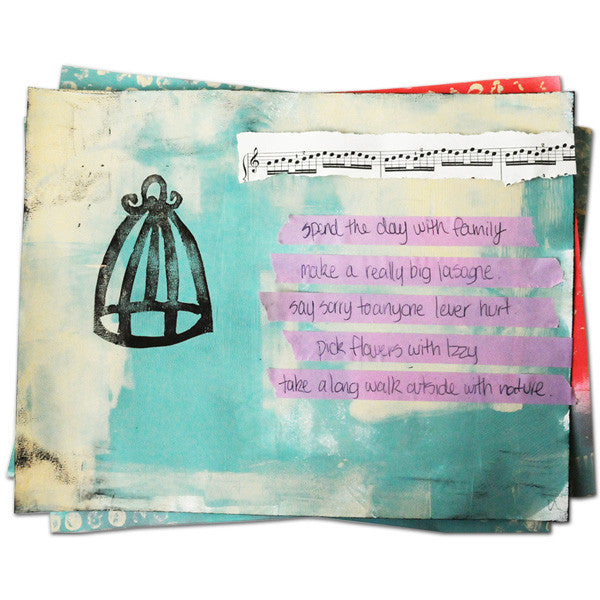 spend the day with family
make a really big lasagne.
say sorry to anyone I ever hurt
pick flowers with Izzy
take a long walk outside with nature.